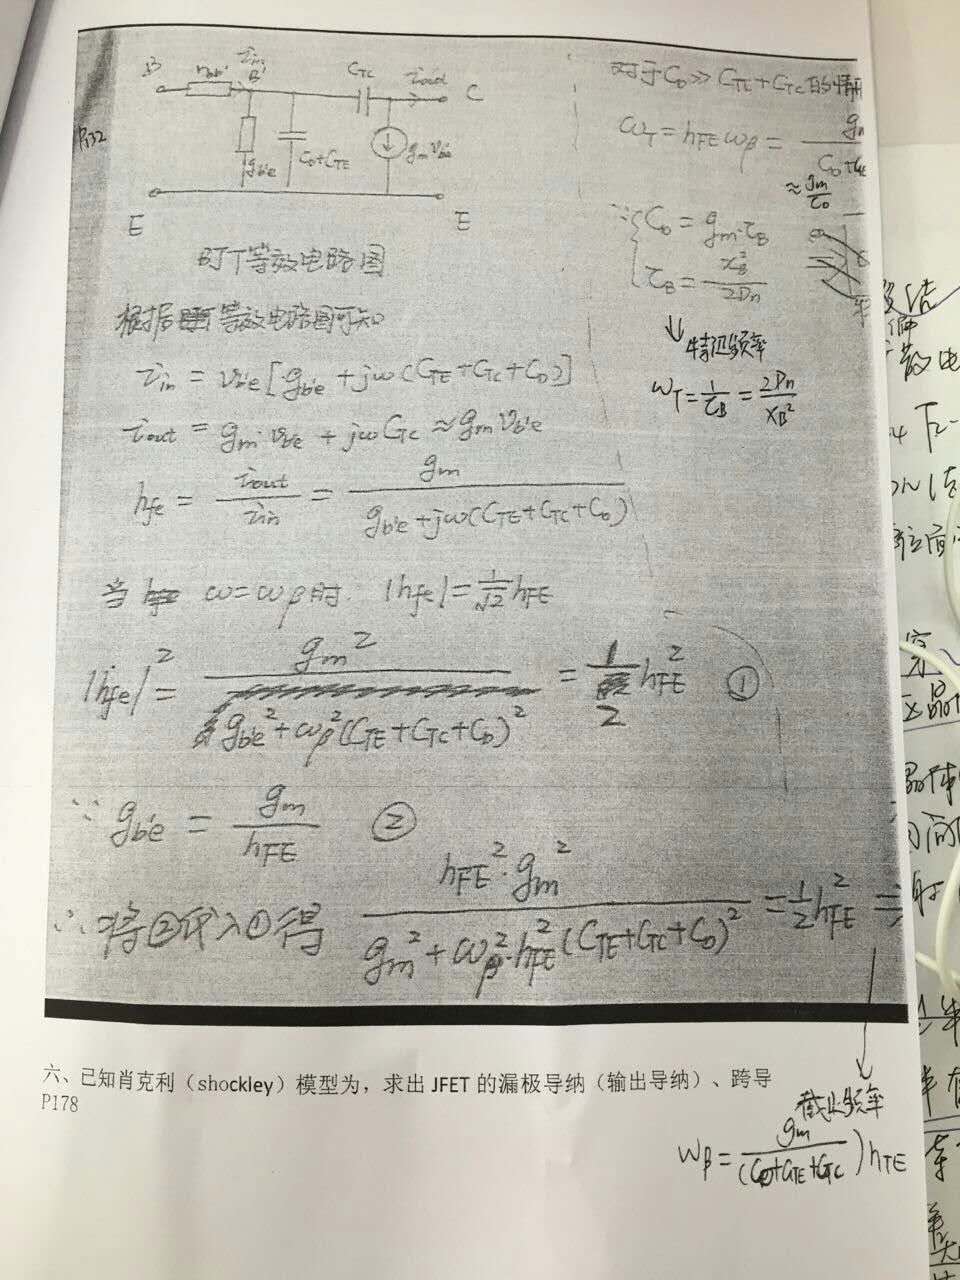 P132
B
r_bb'
i_in
B'
C_TC
i_out
C
g_b'e
C_D+C_TE
g_m v_b'e
E
E
BJT等效电路图
根据BJT等效电路图可知
i_in = v_b'e[g_b'e + jω(C_TE+C_TC+C_D)]
i_out = g_m·v_b'e + jωC_TC ≈ g_m v_b'e
h_fe = i_out / i_in = g_m / (g_b'e + jω(C_TE+C_TC+C_D))
当 ω=ω_β时 |h_fe| = 1/√2 h_FE
|h_fe|² = g_m² / (g_b'e² + ω_β²(C_TE+C_TC+C_D)²) = 1/2 h_FE² ①
∵ g_b'e = g_m / h_FE ②
∴ 将②代入①得 h_FE²·g_m² / (g_m² + ω_β²·h_FE²(C_TE+C_TC+C_D)²) = 1/2 h_FE² ⇒
对于C_D ≫ C_TE + C_TC 的情
ω_T = h_FE ω_β =
≈ g_m / C_D
∵ { C_D = g_m·τ_B
τ_B = X_B² / 2D_n
↓ 特征频率
ω_T = 1/τ_B = 2D_n / X_B²
六、已知肖克利（shockley）模型为，求出 JFET 的漏极导纳（输出导纳）、跨导
P178
截止频率
ω_β = g_m / (C_D+C_TE+C_TC) h_TE